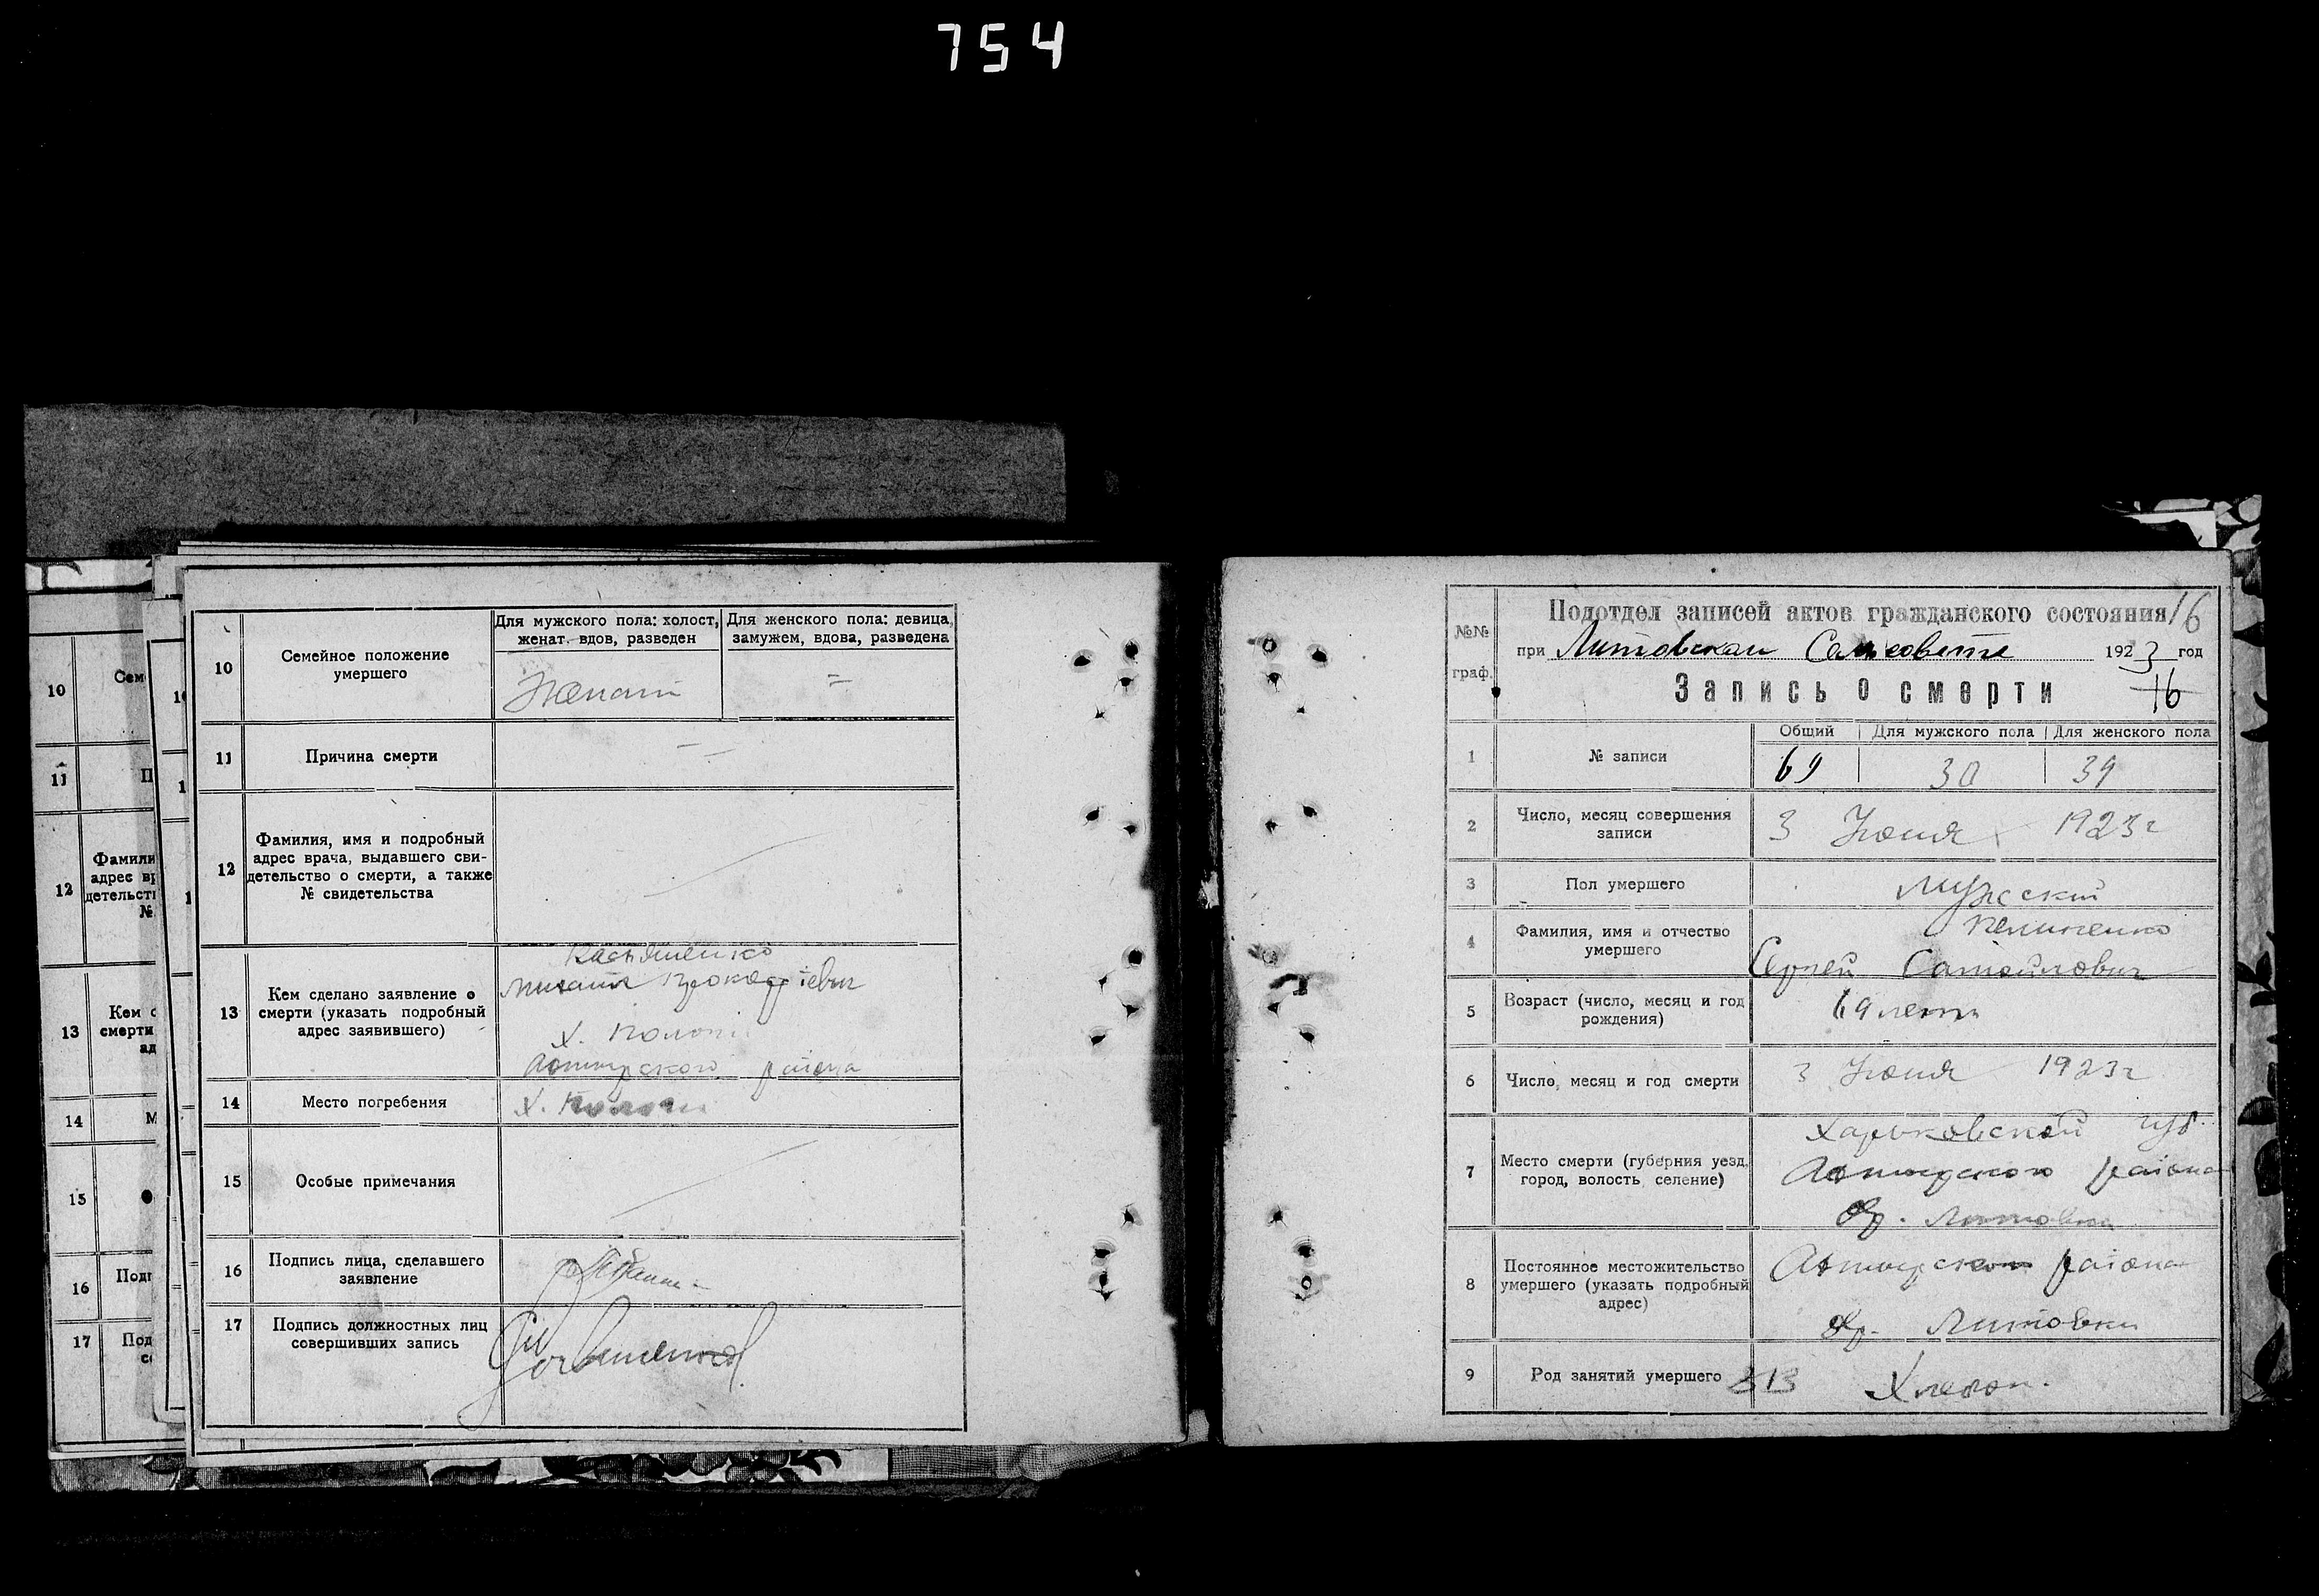 754
10
Семейное положение
умершего
Для мужского пола: холост,
женат вдов, разведен
Для женского пола: девица,
замужем, вдова, разведена
Женат
=
11
Причина смерти
12
Фамилия, имя и подробный
адрес врача, выдавшего сви-
детельство о смерти, а также
№ свидетельства
13
Кем сделано заявление о
смерти (указать подробный
адрес заявившего)
Михаил
х.
района
14
Место погребения
х.
15
Особые примечания
16
Подпись лица, сделавшего
заявление
17
Подпись должностных лиц
совершивших запись
10
Сем
11
П
12
Фамили
адрес вр
детельст
№
13
Кем с
смерти
ад
14
М
15
16
Подп
17
Под
№№
граф.
Подотдел записей актов гражданского состояния
16
при Литовском Сельсовете 1923 год
Запись о смерти
16
1
№ записи
Общий
Для мужского пола
Для женского пола
69
30
39
2
Число, месяц совершения
записи
3 Июня 1923 г
3
Пол умершего
Мужской
4
Фамилия, имя и отчество
умершего
Сергей Самойлович
5
Возраст (число, месяц и год
рождения)
69 лет
6
Число, месяц и год смерти
3 Июня 1923 г
7
Место смерти (губерния уезд,
город, волость селение)
Харьковской губ.
района
Литовки
8
Постоянное местожительство
умершего (указать подробный
адрес)
района
Литовки
9
Род занятий умершего
313
Хлебоп.